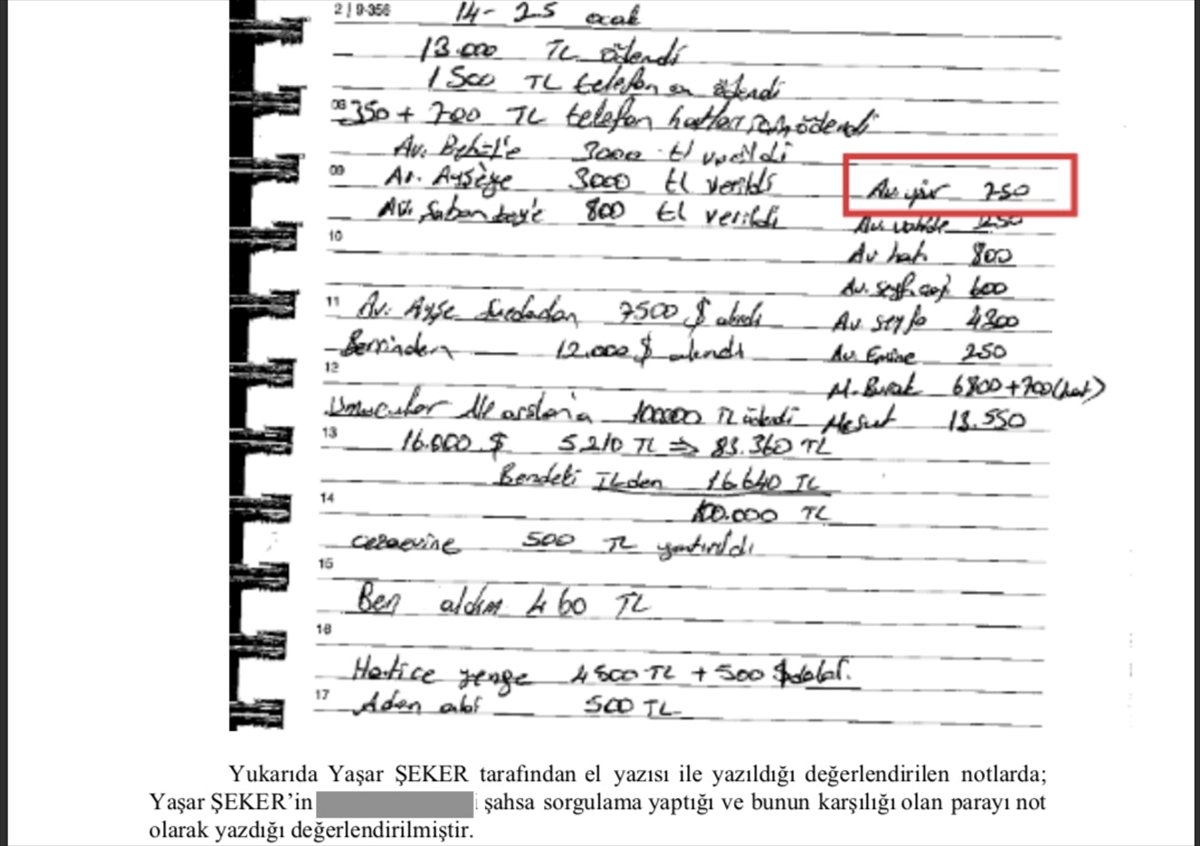 2 | 9-356
14 - 25 ocak
13.000 TL ödendi
1500 TL telefon ödendi
08 350 + 700 TL telefon hatları için ödendi
Av. 3000 tl verildi
09 Av. Ayşeye 3000 tl verildi
Av. Şaban bey'e 800 tl verildi
10
11 Av. Ayşe 7500 $ alındı
12.000 $ alındı
12
100000 TL ödendi
13 16.000 $ 5.210 TL ⇒ 83.360 TL
Bendeki TLden 16.640 TL
14 100.000 TL
cezaevine 500 TL yatırıldı
15
Ben aldım 460 TL
16
Hatice yenge 4500 TL + 500 $
17 Adem abi 500 TL
Av. 750
Av. 250
Av. 800
Av. 600
Av. seyfo 4300
Av. Emine 250
M. Burak 6800 + 700 (hat)
Mesut 13.550
Yukarıda Yaşar ŞEKER tarafından el yazısı ile yazıldığı değerlendirilen notlarda;
Yaşar ŞEKER'in şahsa sorgulama yaptığı ve bunun karşılığı olan parayı not
olarak yazdığı değerlendirilmiştir.